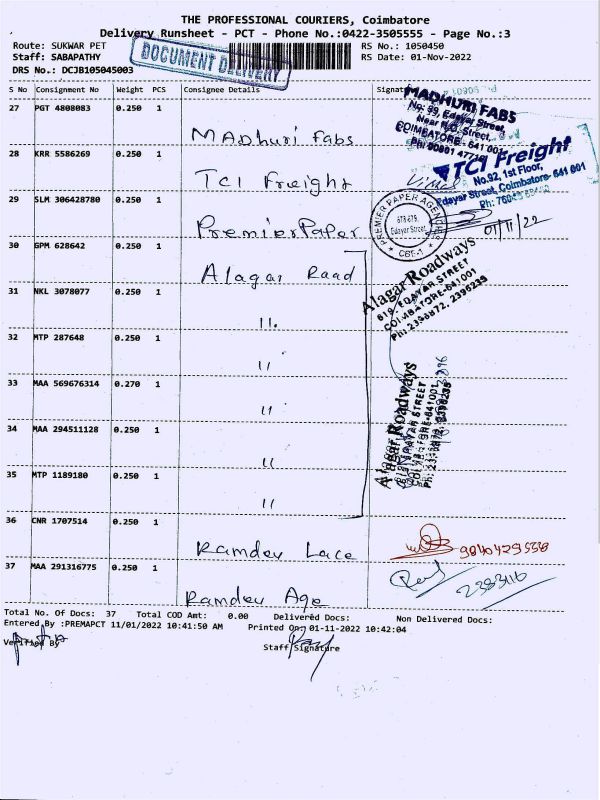 THE PROFESSIONAL COURIERS, Coimbatore
Delivery Runsheet - PCT - Phone No.:0422-3505555 - Page No.:3
Route: SUKWAR PET
RS No.: 1050450
Staff: SABAPATHY
RS Date: 01-Nov-2022
DRS No.: DCJB105045003
DOCUMENT DELIVERY
S No Consignment No Weight PCS Consignee Details Signat
27 PGT 4808083 0.250 1 MADhuri Fabs
MADHURI FABS
No: 99, Edayar Street,
Near Street,
COIMBATORE - 641 001
28 KRR 5586269 0.250 1 TCI Freight
TCI Freight
No.92, 1st Floor,
Edayar Street, Coimbatore- 641 001
29 SLM 306428780 0.250 1 PremierPaper
PREMIER PAPER AGENCIES
Edayar Street
CBE-1
01/11/22
30 GPM 628642 0.250 1 Alagar Raad
Alagar Roadways
619, EDAYAR STREET
COIMBATORE-641001
31 NKL 3078077 0.250 1 11.
32 MTP 287648 0.250 1 11
33 MAA 569676314 0.270 1 11
Alagar Roadways
34 MAA 294511128 0.250 1 11
35 MTP 1189180 0.250 1 11
36 CNR 1707514 0.250 1 Ramdev Lace
9840429558
37 MAA 291316775 0.250 1 Ramdev Age
2383116
Total No. Of Docs: 37 Total COD Amt: 0.00 Delivered Docs: Non Delivered Docs:
Entered By :PREMAPCT 11/01/2022 10:41:50 AM Printed On: 01-11-2022 10:42:04
Verified By
Staff Signature